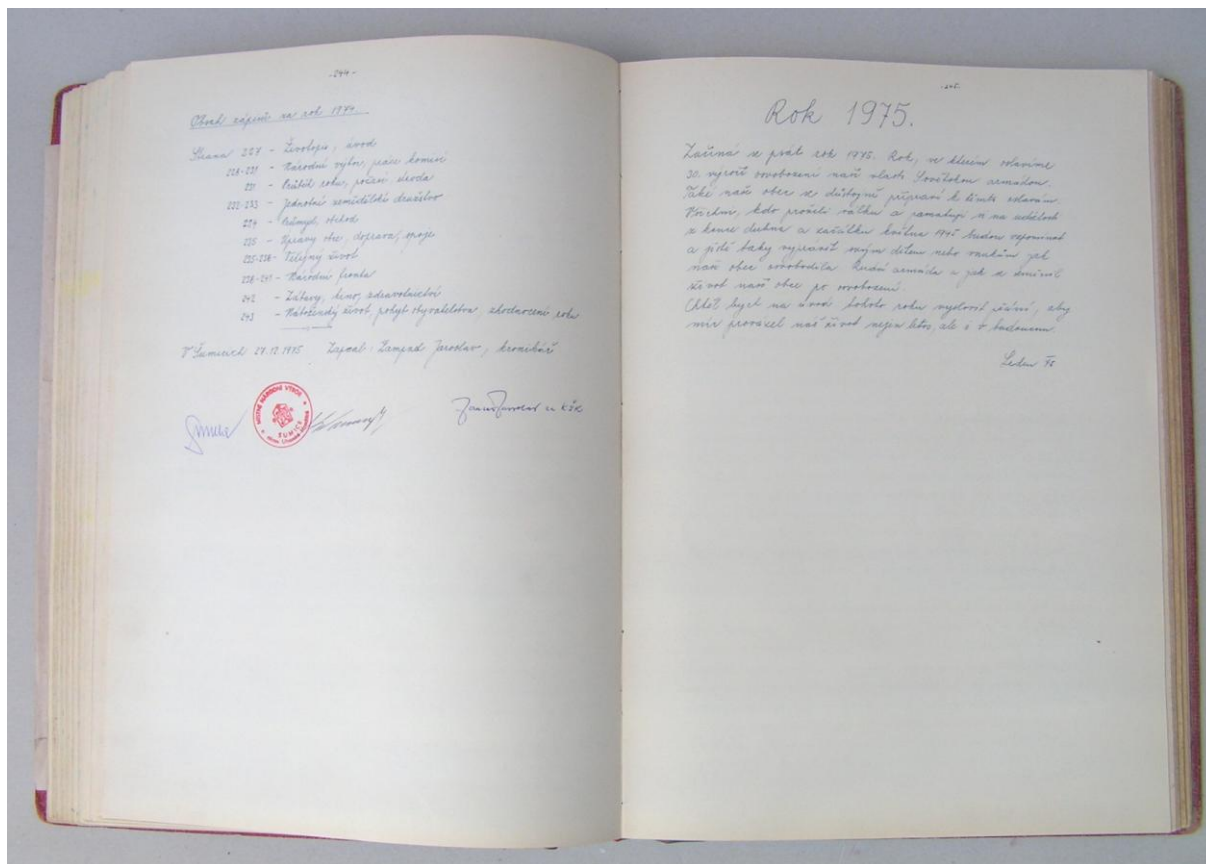 -244-
Obsah zápisů za rok 1974.
Strana 227 - Životopis, úvod
228-231 - Národní výbor, práce komisí
231 - Průběh roku, počasí, úroda
232-233 - Jednotné zemědělské družstvo
234 - Průmysl, obchod
235 - Úpravy obce, doprava, spoje
235-238 - Veřejný život
238-241 - Národní fronta
242 - Zábavy, kino, zdravotnictví
243 - Náboženský život, pohyb obyvatelstva, zhodnocení roku
V Šumicích 27.12.1975 Zapsal: Jaroslav, kronikář
MÍSTNÍ NÁRODNÍ VÝBOR
ŠUMICE
Jaroslav za KŽK
-245-
Rok 1975.
Začíná se psát rok 1975. Rok, ve kterém oslavíme
30. výročí osvobození naší vlasti Sovětskou armádou.
Také naše obec se důstojně připraví k těmto oslavám.
Všichni, kdo prožili válku a pamatují si na události
z konce dubna a začátku května 1945 budou vzpomínat
a jistě taky vyprávět svým dětem nebo vnukům jak
naši obec osvobodila Rudá armáda a jak se změnil
život naší obce po osvobození.
Chtěl bych na úvod tohoto roku vyslovit přání, aby
mír provázel náš život nejen letos, ale i v budoucnu.
Leden 75